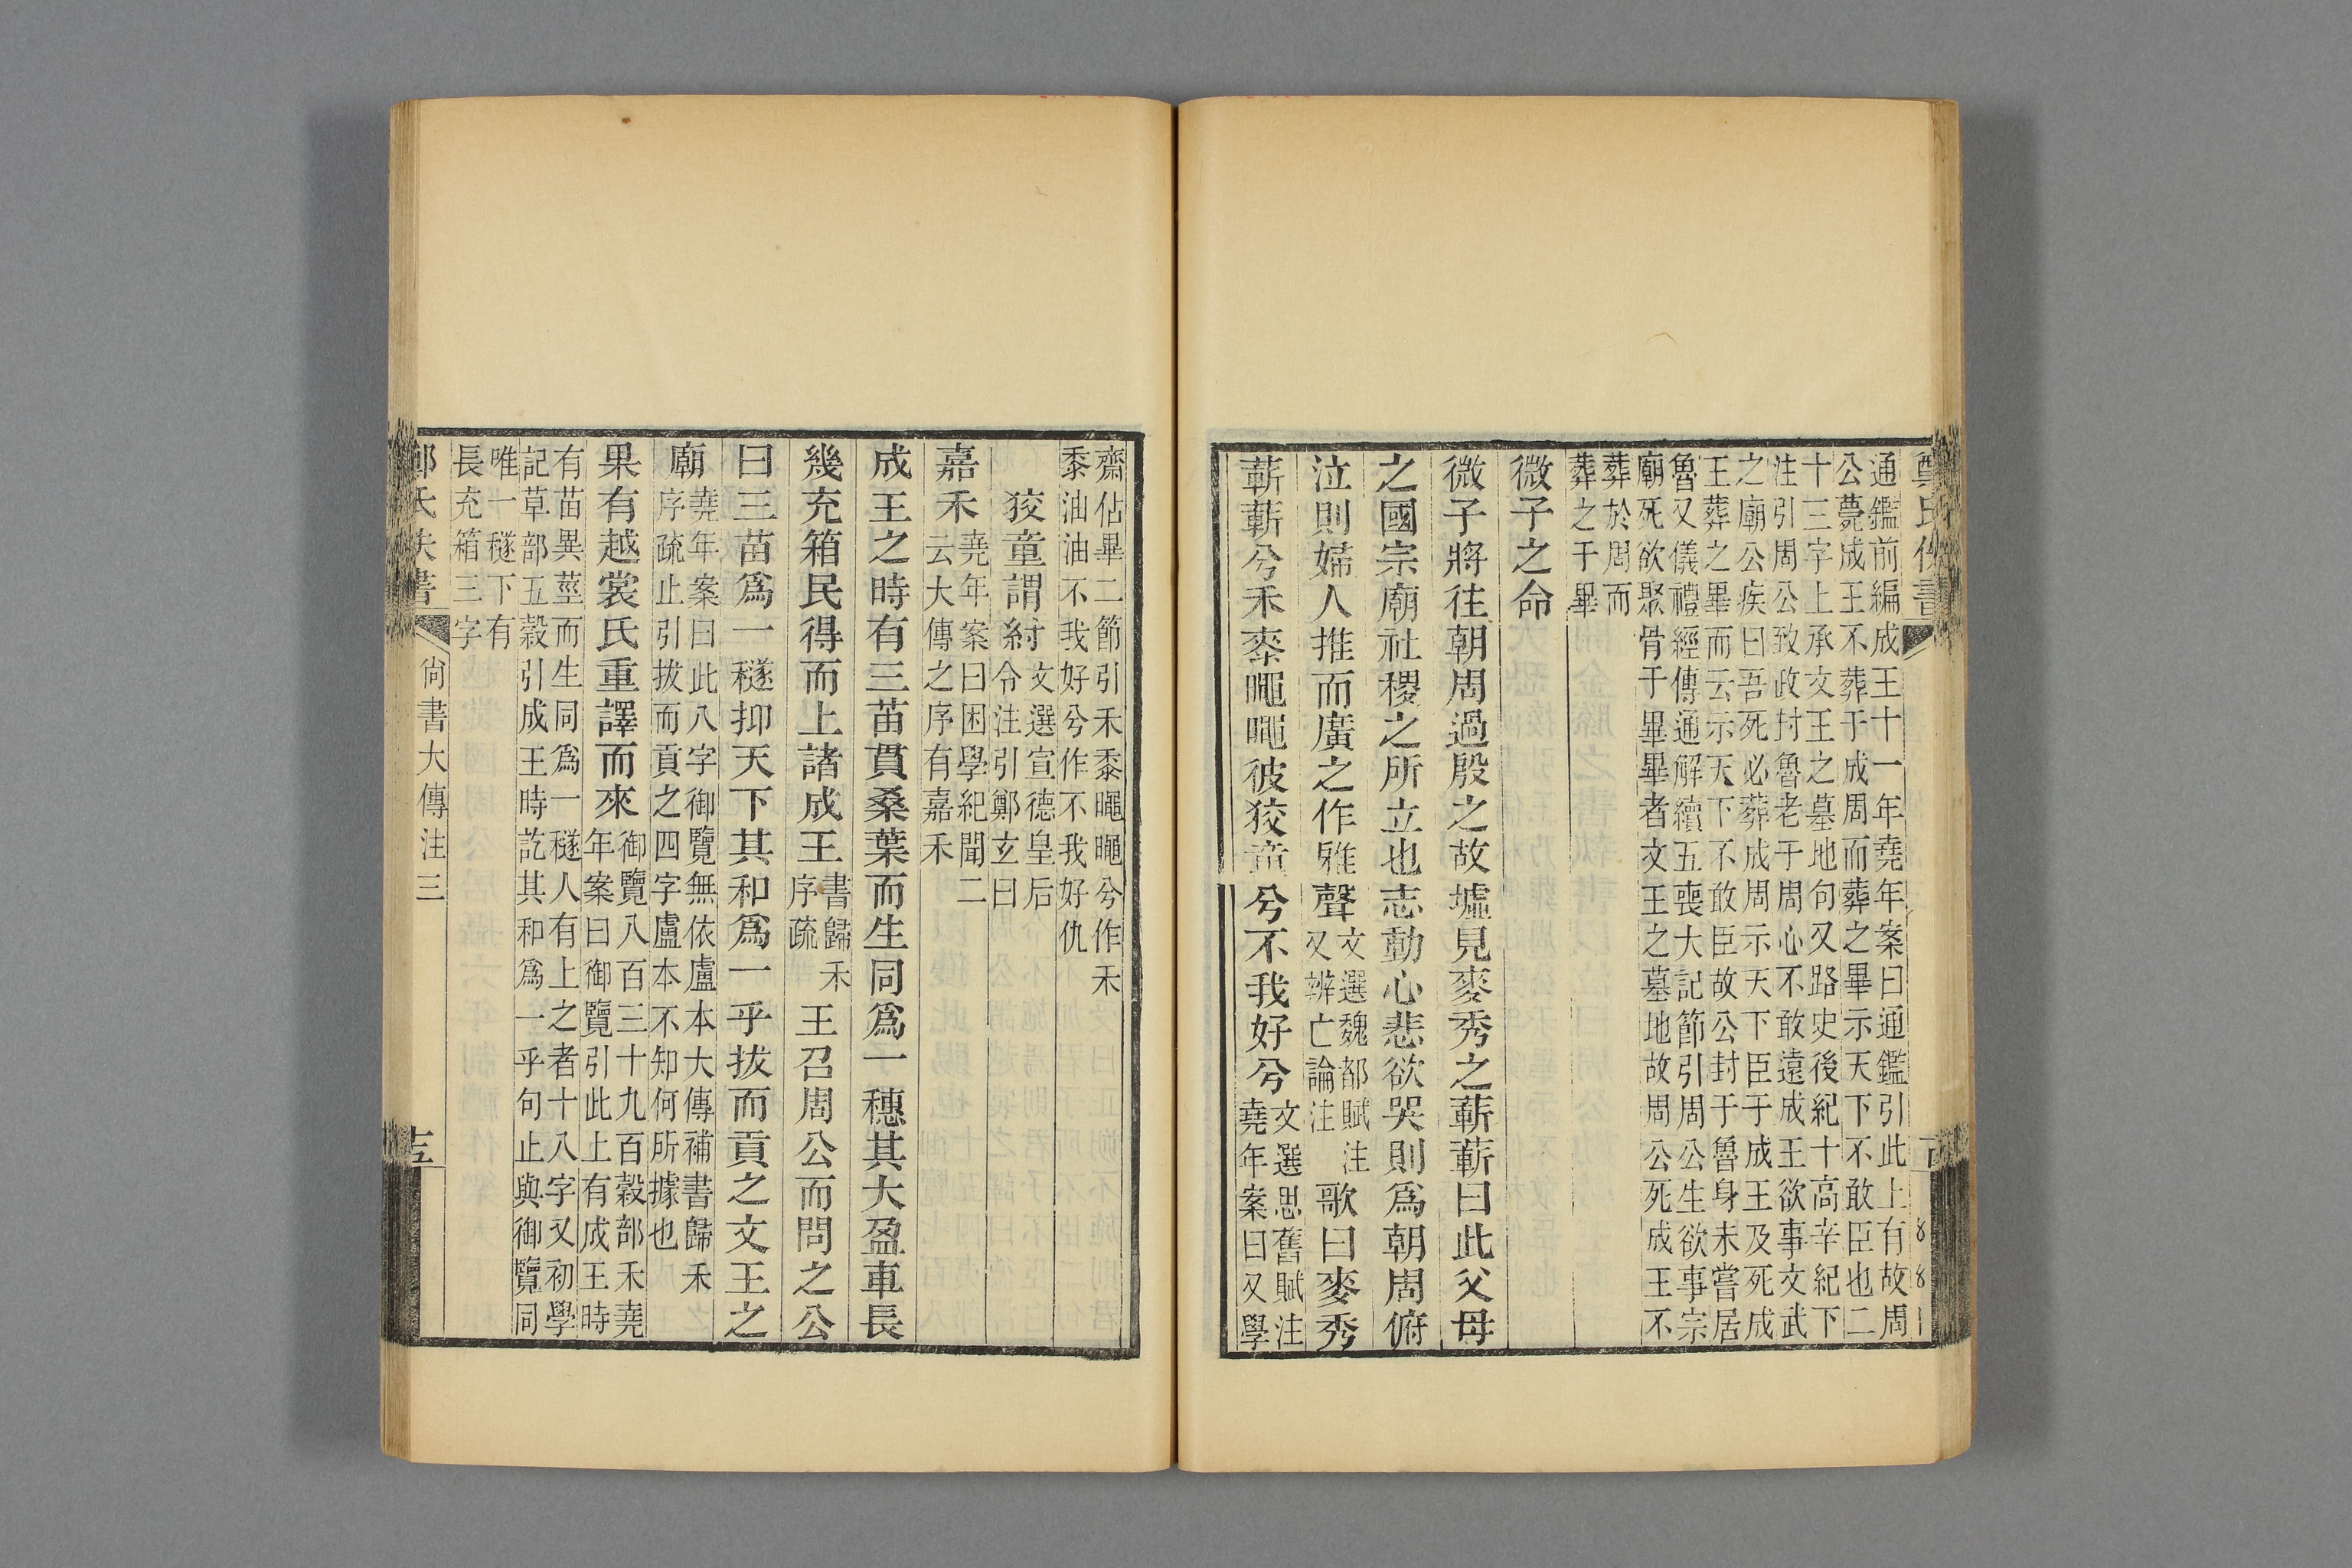 鄭氏佚書
通鑑前編成王十一年堯年案曰通鑑引此上有故周
公薨成王不葬于成周而葬之畢示天下不敢臣也二
十三字上承文王之墓地句又路史後紀十高辛紀下
注引周公致政封魯老于周心不敢遠成王欲事文武
之廟公疾曰吾死必葬成周示天下臣于成王及死成
王葬之畢而云示天下不敢臣故公封于魯身未嘗居
魯又儀禮經傳通解續五喪大記節引周公生欲事宗
廟死欲聚骨于畢畢者文王之墓地故周公死成王不
葬於周而
葬之于畢
微子之命
微子將往朝周過殷之故墟見麥秀之蘄蘄曰此父母
之國宗廟社稷之所立也志動心悲欲哭則爲朝周俯
泣則婦人推而廣之作雅聲文選魏都賦注又辨亡論注歌曰麥秀
蘄蘄兮禾黍蠅蠅彼狡童兮不我好兮文選思舊賦注堯年案曰又學
齋佔畢二節引禾黍蠅蠅兮作禾
黍油油不我好兮作不我好仇
狡童謂紂文選宣德皇后令注引鄭玄曰
嘉禾堯年案曰困學紀聞二云大傳之序有嘉禾
成王之時有三苗貫桑葉而生同爲一穗其大盈車長
幾充箱民得而上諸成王書歸禾序疏王召周公而問之公
曰三苗爲一穟抑天下其和爲一乎拔而貢之文王之
廟堯年案曰此八字御覽無依盧本大傳補書歸禾
序疏止引拔而貢之四字盧本不知何所據也
果有越裳氏重譯而來御覽八百三十九百穀部禾堯
年案曰御覽引此上有成王時
有苗異莖而生同爲一穟人有上之者十八字又初學
記草部五穀引成王時訖其和爲一乎句止與御覽同
唯一穟下有
長充箱三字
鄭氏佚書
尙書大傳注三
十五